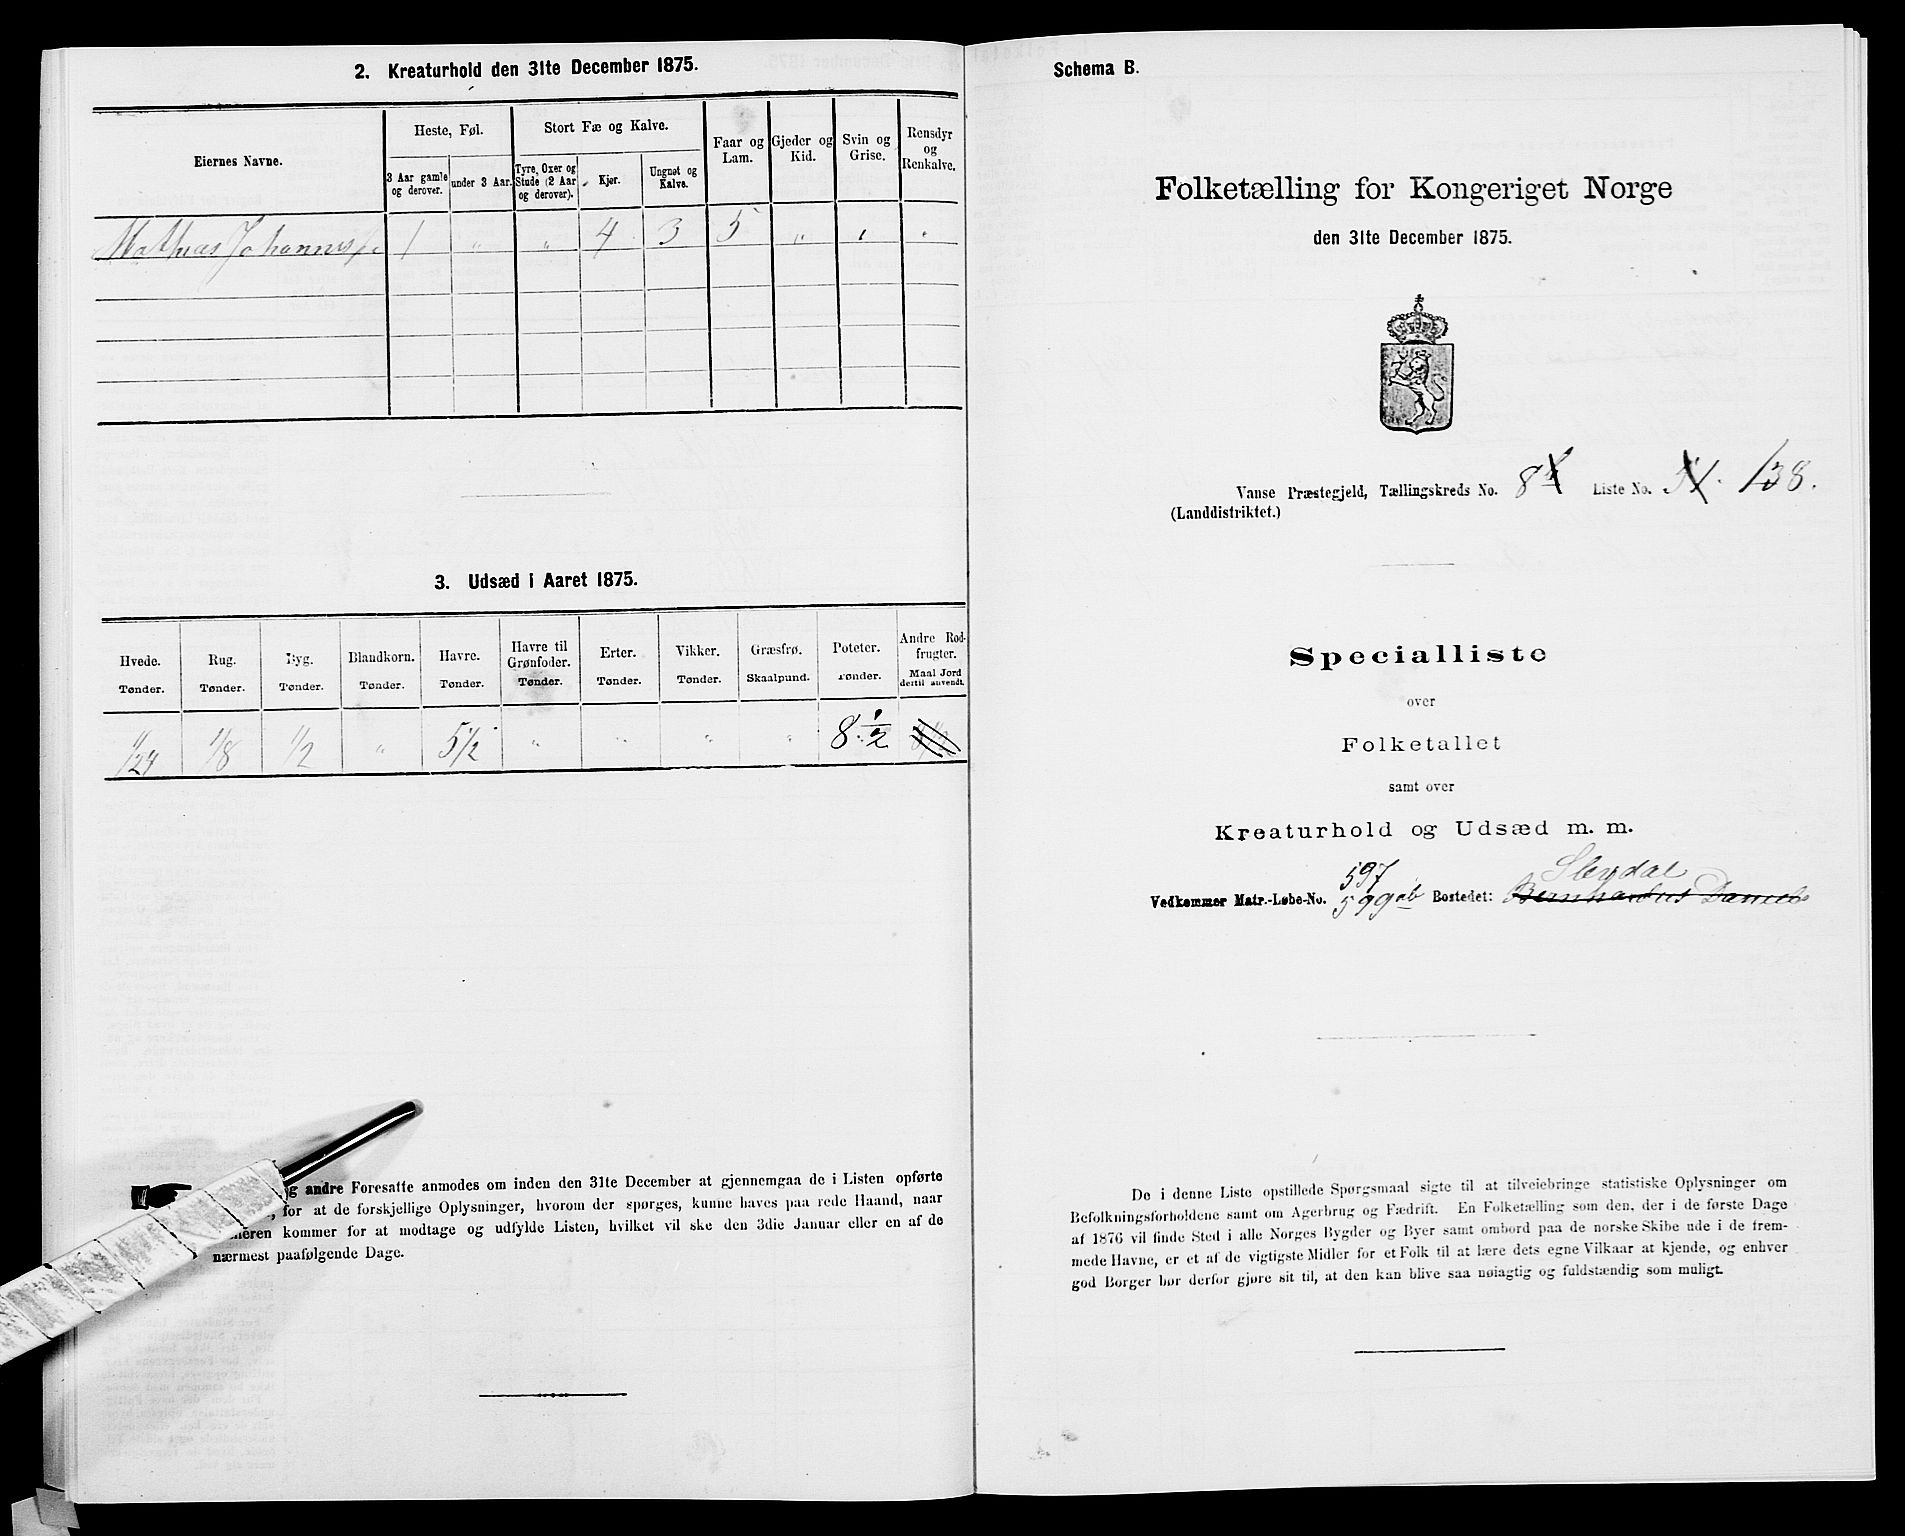 2. Kreaturhold den 31te December 1875.
Eiernes Navne.
Heste, Føl.
3 Aar gamle og derover.
under 3 Aar.
Stort Fæ og Kalve.
Tyre, Oxer og Stude (2 Aar og derover).
Kjør.
Ungnøt og Kalve.
Faar og Lam.
Gjeder og Kid.
Svin og Grise.
Rensdyr og Renkalve.
Mathias Johannes 1 " " 4 3 5 " " "
3. Udsæd i Aaret 1875.
Hvede. Rug. Byg. Blandkorn. Havre. Havre til Grønfoder. Erter. Vikker. Græsfrø. Poteter. Andre Rodfrugter.
Tønder. Tønder. Tønder. Tønder. Tønder. Tønder. Tønder. Tønder. Skaalpund. Tønder. Maal Jord dertil anvendt.
1/24 1/8 1/2 " 5 1/2 " " " " 8 1/2
andre Foresatte anmodes om inden den 31te December at gjennemgaa de i Listen opførte
for at de forskjellige Oplysninger, hvorom der spørges, kunne haves paa rede Haand, naar
kommer for at modtage og udfylde Listen, hvilket vil ske den 3die Januar eller en af de
nærmest paafølgende Dage.
Schema B.
Folketælling for Kongeriget Norge
den 31te December 1875.
Vanse Præstegjeld, Tællingskreds No. 8 Liste No. 138.
(Landdistriktet.)
Specialliste
over
Folketallet
samt over
Kreaturhold og Udsæd m. m.
597
Vedkommer Matr.-Løbe-No. 599ab Bostedet: Bernhardus Daniels
De i denne Liste opstillede Spørgsmaal sigte til at tilveiebringe statistiske Oplysninger om
Befolkningsforholdene samt om Agerbrug og Fædrift. En Folketælling som den, der i de første Dage
af 1876 vil finde Sted i alle Norges Bygder og Byer samt ombord paa de norske Skibe ude i de frem-
mede Havne, er et af de vigtigste Midler for et Folk til at lære dets egne Vilkaar at kjende, og enhver
god Borger bør derfor gjøre sit til, at den kan blive saa nøiagtig og fuldstændig som muligt.